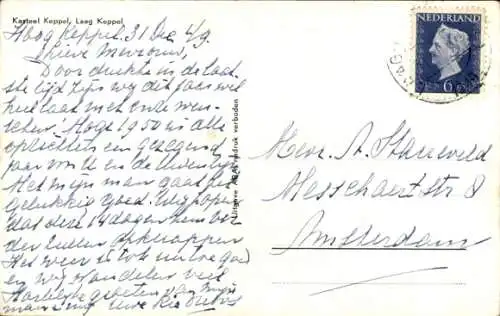 Kasteel Keppel, Laag Keppel
Hoog Keppel, 31 Dec 49
Lieve Mevrouw,
Door drukte in de laat-
ste tijd zijn wij dit jaar wel
heel laat met onze wen-
schen! Moge 1950 in alle
opzichten een gezegend
jaar voor U en de Uwen zijn
Met mijn man gaat het
gelukkig goed. Wij hopen
dat deze 14 dagen hem ver-
der zullen opknappen
Het weer is ook
en wij wandelen veel
Hartelijke groeten van mijn
man en Uwe
Uitgave nadruk verboden
NEDERLAND
6
Mevr. A. Stareveld
Messchaertstr 8
Amsterdam